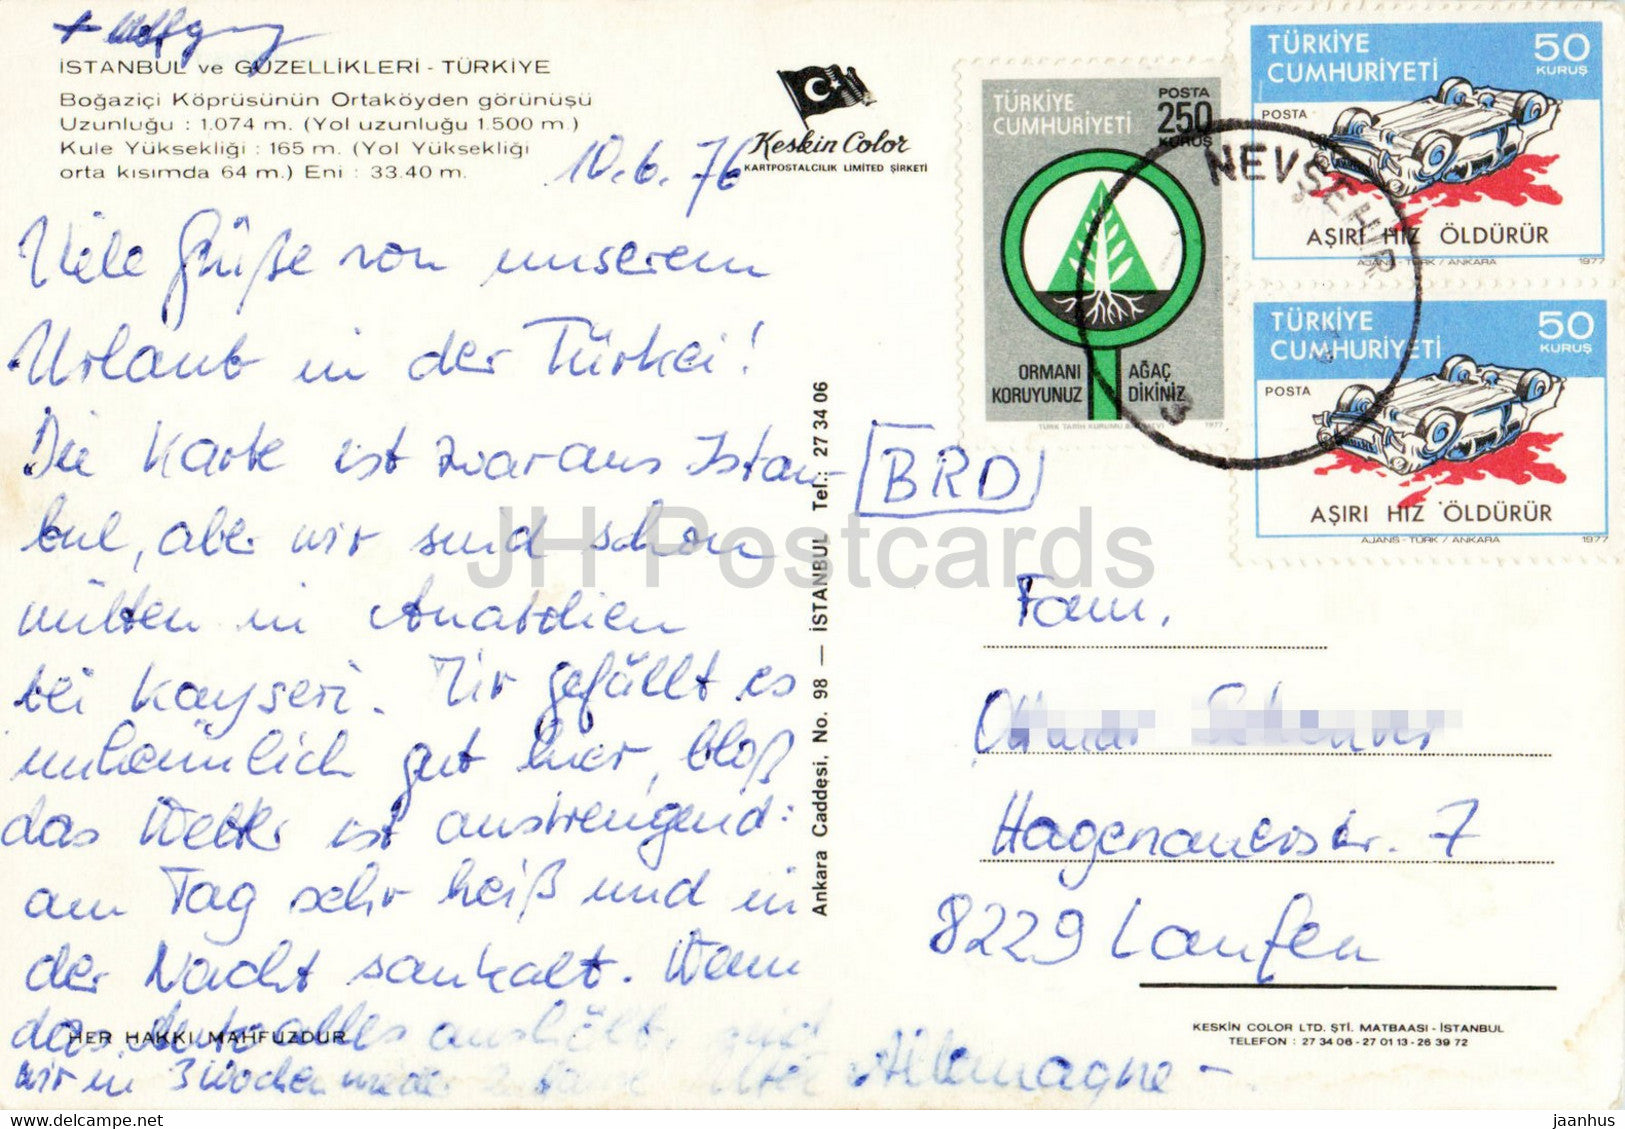 + Wolfgang
İSTANBUL ve GÜZELLİKLERİ - TÜRKİYE
Boğaziçi Köprüsünün Ortaköyden görünüşü
Uzunluğu : 1.074 m. (Yol uzunluğu 1.500 m.)
Kule Yüksekliği : 165 m. (Yol Yüksekliği
orta kısımda 64 m.) Eni : 33.40 m.
Keskin Color
KARTPOSTALCILIK LİMİTED ŞİRKETİ
10.6.76
Viele Grüße von unserem
Urlaub in der Türkei!
Die Karte ist zwar aus Istan-
bul, aber wir sind schon
mitten in Anatolien
bei Kayseri. Mir gefällt es
unheimlich gut hier, bloß
das Wetter ist anstrengend:
am Tag sehr heiß und in
der Nacht saukalt. Wenn
das Auto alles aushält, sind
wir in 3 Wochen wieder
HER HAKKI MAHFUZDUR
Ankara Caddesi, No. 98 — İSTANBUL Tel.: 27 34 06
TÜRKİYE
CUMHURİYETİ
POSTA
250
KURUŞ
ORMANI
KORUYUNUZ
AĞAÇ
DİKİNİZ
TÜRK TARİH KURUMU BASIMEVİ 1977
TÜRKİYE
CUMHURİYETİ
50
KURUŞ
POSTA
AŞIRI HIZ ÖLDÜRÜR
AJANS - TÜRK / ANKARA 1977
TÜRKİYE
CUMHURİYETİ
50
KURUŞ
POSTA
AŞIRI HIZ ÖLDÜRÜR
AJANS - TÜRK / ANKARA 1977
NEVŞEHİR
BRD
Fam.
Hagenauerstr. 7
8229 Laufen
Allemagne -.
KESKİN COLOR LTD. ŞTİ. MATBAASI - İSTANBUL
TELEFON : 27 34 06 - 27 01 13 - 26 39 72
JH Postcards
jaanhus